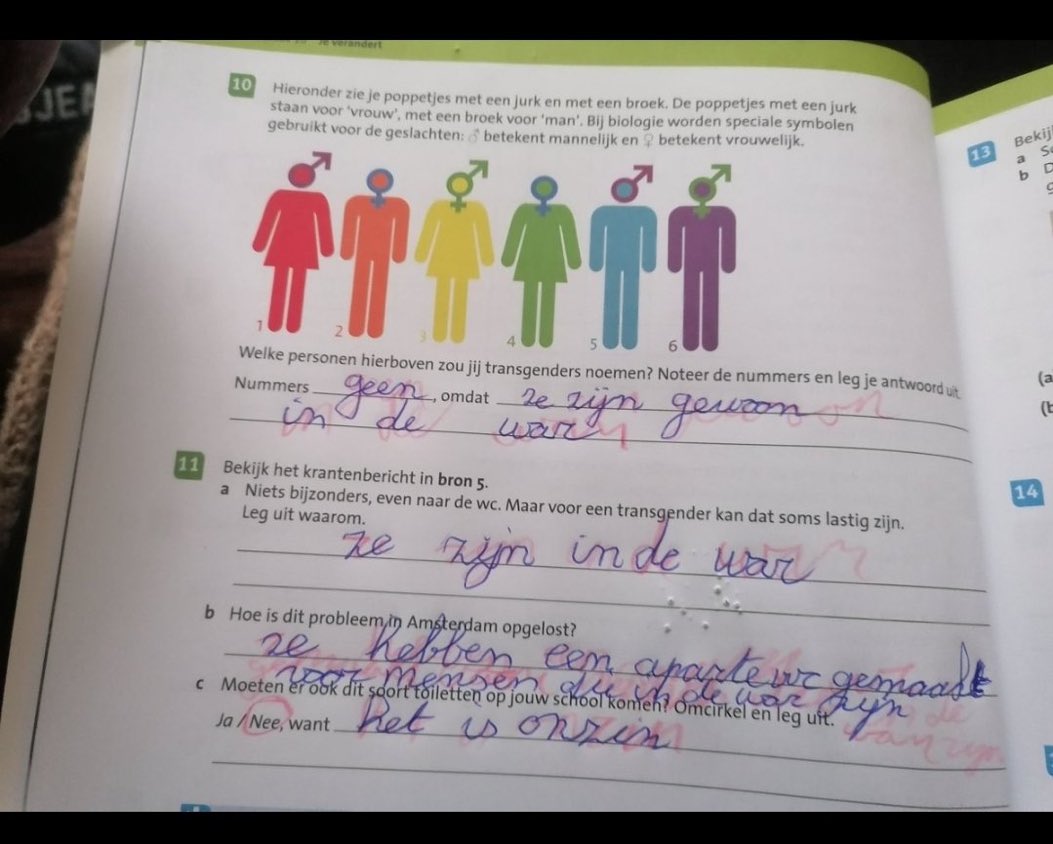 Je verandert
10 Hieronder zie je poppetjes met een jurk en met een broek. De poppetjes met een jurk
staan voor 'vrouw', met een broek voor 'man'. Bij biologie worden speciale symbolen
gebruikt voor de geslachten: ♂ betekent mannelijk en ♀ betekent vrouwelijk.
1 2 3 4 5 6
Welke personen hierboven zou jij transgenders noemen? Noteer de nummers en leg je antwoord uit.
Nummers geen, omdat ze zijn gewoon
in de war
11 Bekijk het krantenbericht in bron 5.
a Niets bijzonders, even naar de wc. Maar voor een transgender kan dat soms lastig zijn.
Leg uit waarom.
ze zijn in de war
b Hoe is dit probleem in Amsterdam opgelost?
ze hebben een aparte wc gemaakt
voor mensen die in de war zijn
c Moeten er ook dit soort toiletten op jouw school komen? Omcirkel en leg uit.
Ja / Nee, want het is onzin
13 Bekij
a
b
14